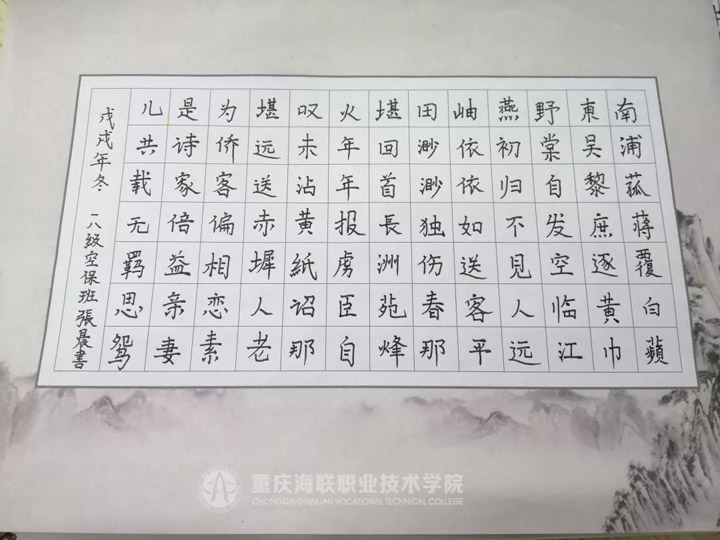 南浦菰蒋覆白蘋
東吴黎庶逐黄巾
野棠自发空临江
燕初归不見人远
岫依依如送客平
田渺渺独伤春那
堪回首長洲苑烽
火年年报虏臣自
叹未沾黄紙诏那
堪远送赤墀人老
为侨客偏相恋素
是诗家倍益亲妻
儿共载无羁思鸳
戊戌年冬 一八级空保班 張晨書
重庆海联职业技术学院
CHONGQING HAILIAN VOCATIONAL TECHNICAL COLLEGE